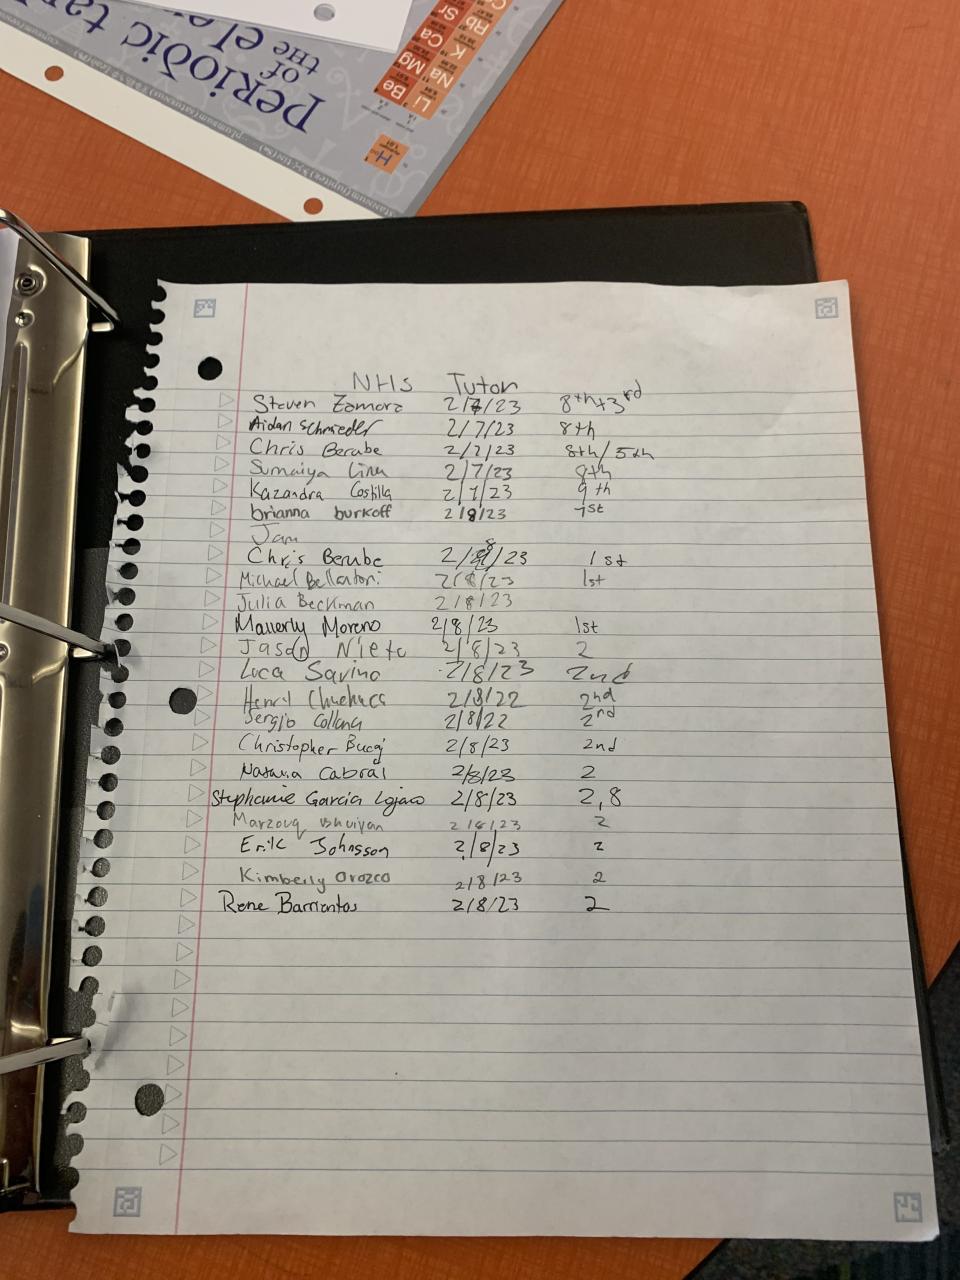 periodic tab
of
THE ele
H
Li Be
Na Mg
K Ca
Rb Sr
NHS Tutor
Steven Zamora 2/7/23 8th+3rd
Aidan Schmieder 2/7/23 8th
Chris Berube 2/7/23 8th/5th
Sumaiya 2/7/23 9th
Kazandra Costilla 2/7/23 9th
brianna burkoff 2/8/23 1st
Jam
Chris Berube 2/8/23 1st
Michael Bellantoni 2/8/23 1st
Julia Beckman 2/8/23
Mallerly Moreno 2/8/23 1st
Jason Nieto 2/8/23 2
Luca Savino 2/8/23 2nd
Henry 2/8/22 2nd
Sergio Collana 2/8/22 2rd
Christopher 2/8/23 2nd
Natalia Cabral 2/8/23 2
Stephanie Garcia 2/8/23 2,8
Marzouq Bhuiyan 2/8/23 2
Erik Johnsson 2/8/23 2
Kimberly Orozco 2/8/23 2
Rene Barrientos 2/8/23 2